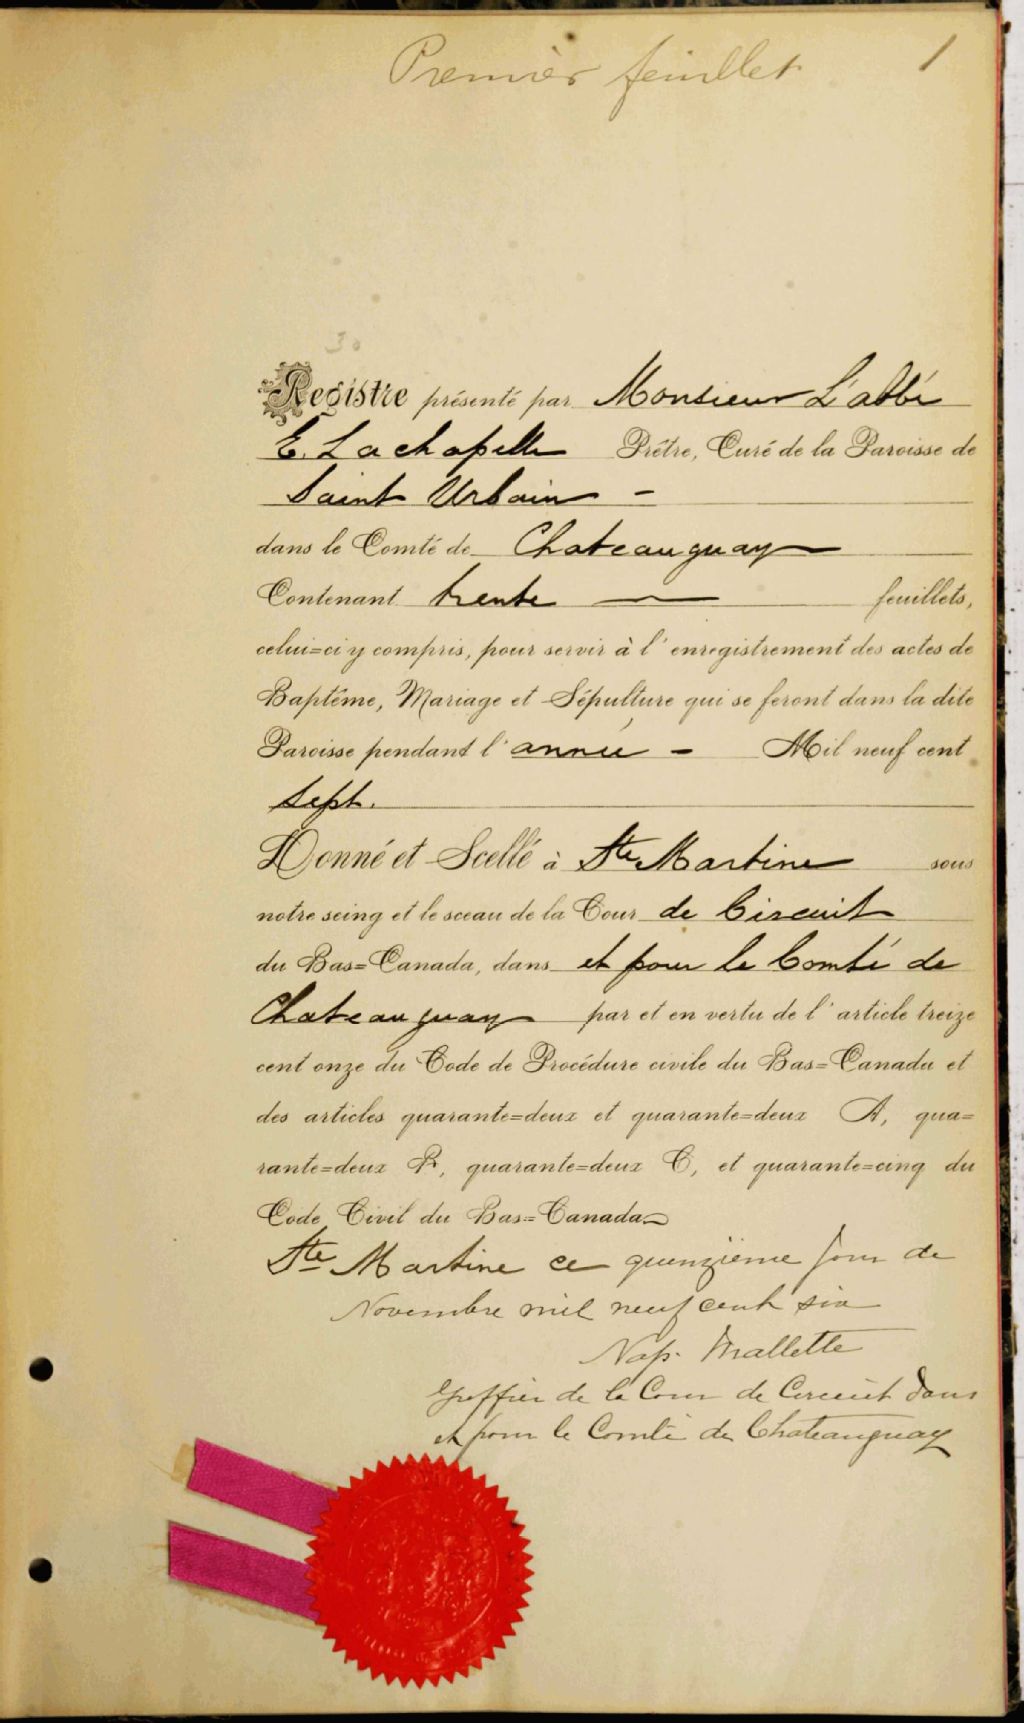 Premier feuillet 1
30
Registre présenté par Monsieur L'abbé
E. Lachapelle Prêtre, Curé de la Paroisse de
Saint Urbain -
dans le Comté de Chateauguay
Contenant trente feuillets,
celui=ci y compris, pour servir à l'enregistrement des actes de
Baptême, Mariage et Sépulture qui se feront dans la dite
Paroisse pendant l'année - Mil neuf cent
sept.
Donné et Scellé à Ste Martine sous
notre seing et le sceau de la Cour de Circuit
du Bas=Canada, dans et pour le Comté de
Chateauguay par et en vertu de l'article treize
cent onze du Code de Procédure civile du Bas=Canada et
des articles quarante=deux et quarante=deux A, qua=
rante=deux B, quarante=deux C, et quarante=cinq du
Code Civil du Bas=Canada
Ste Martine ce quinzième jour de
Novembre mil neuf cent six
Nap. Mallette
Greffier de la Cour de Circuit dans
et pour le Comté de Chateauguay